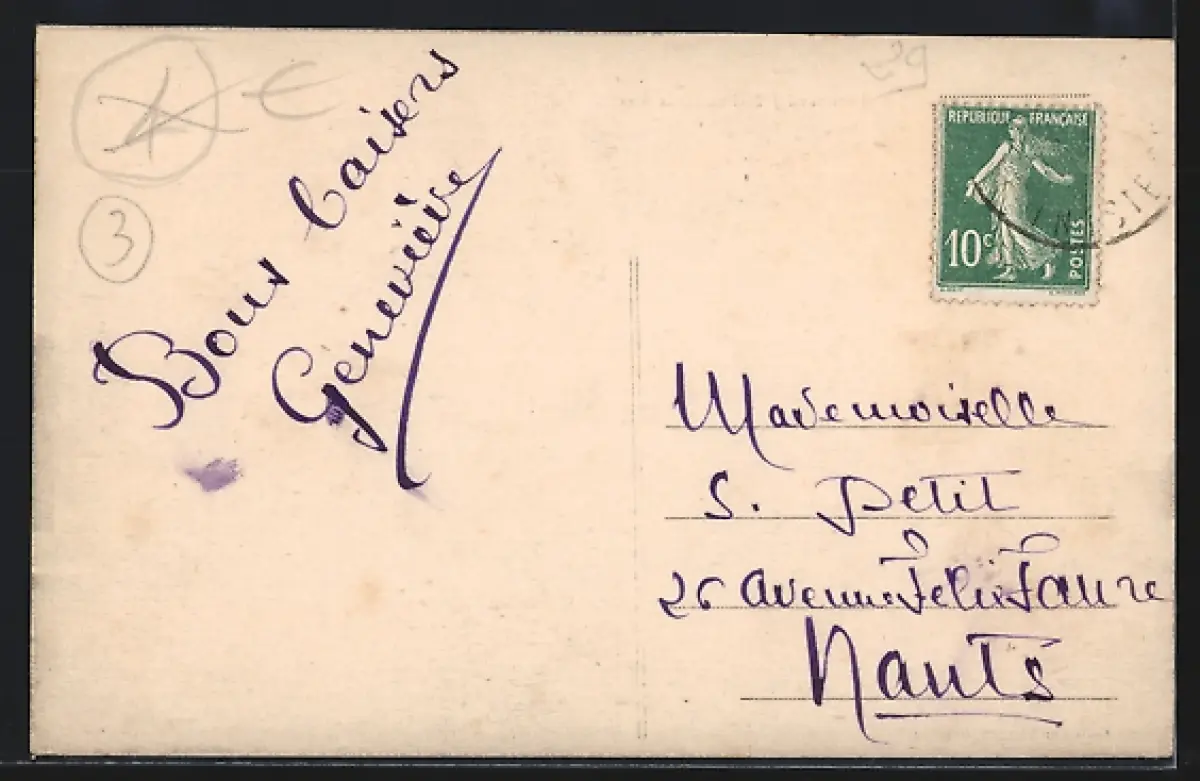 €
3
29
Bons baisers
Geneviève
REPUBLIQUE FRANÇAISE
10c
POSTES
Mademoiselle
S. Petit
26 avenue Felix Faure
Nantes